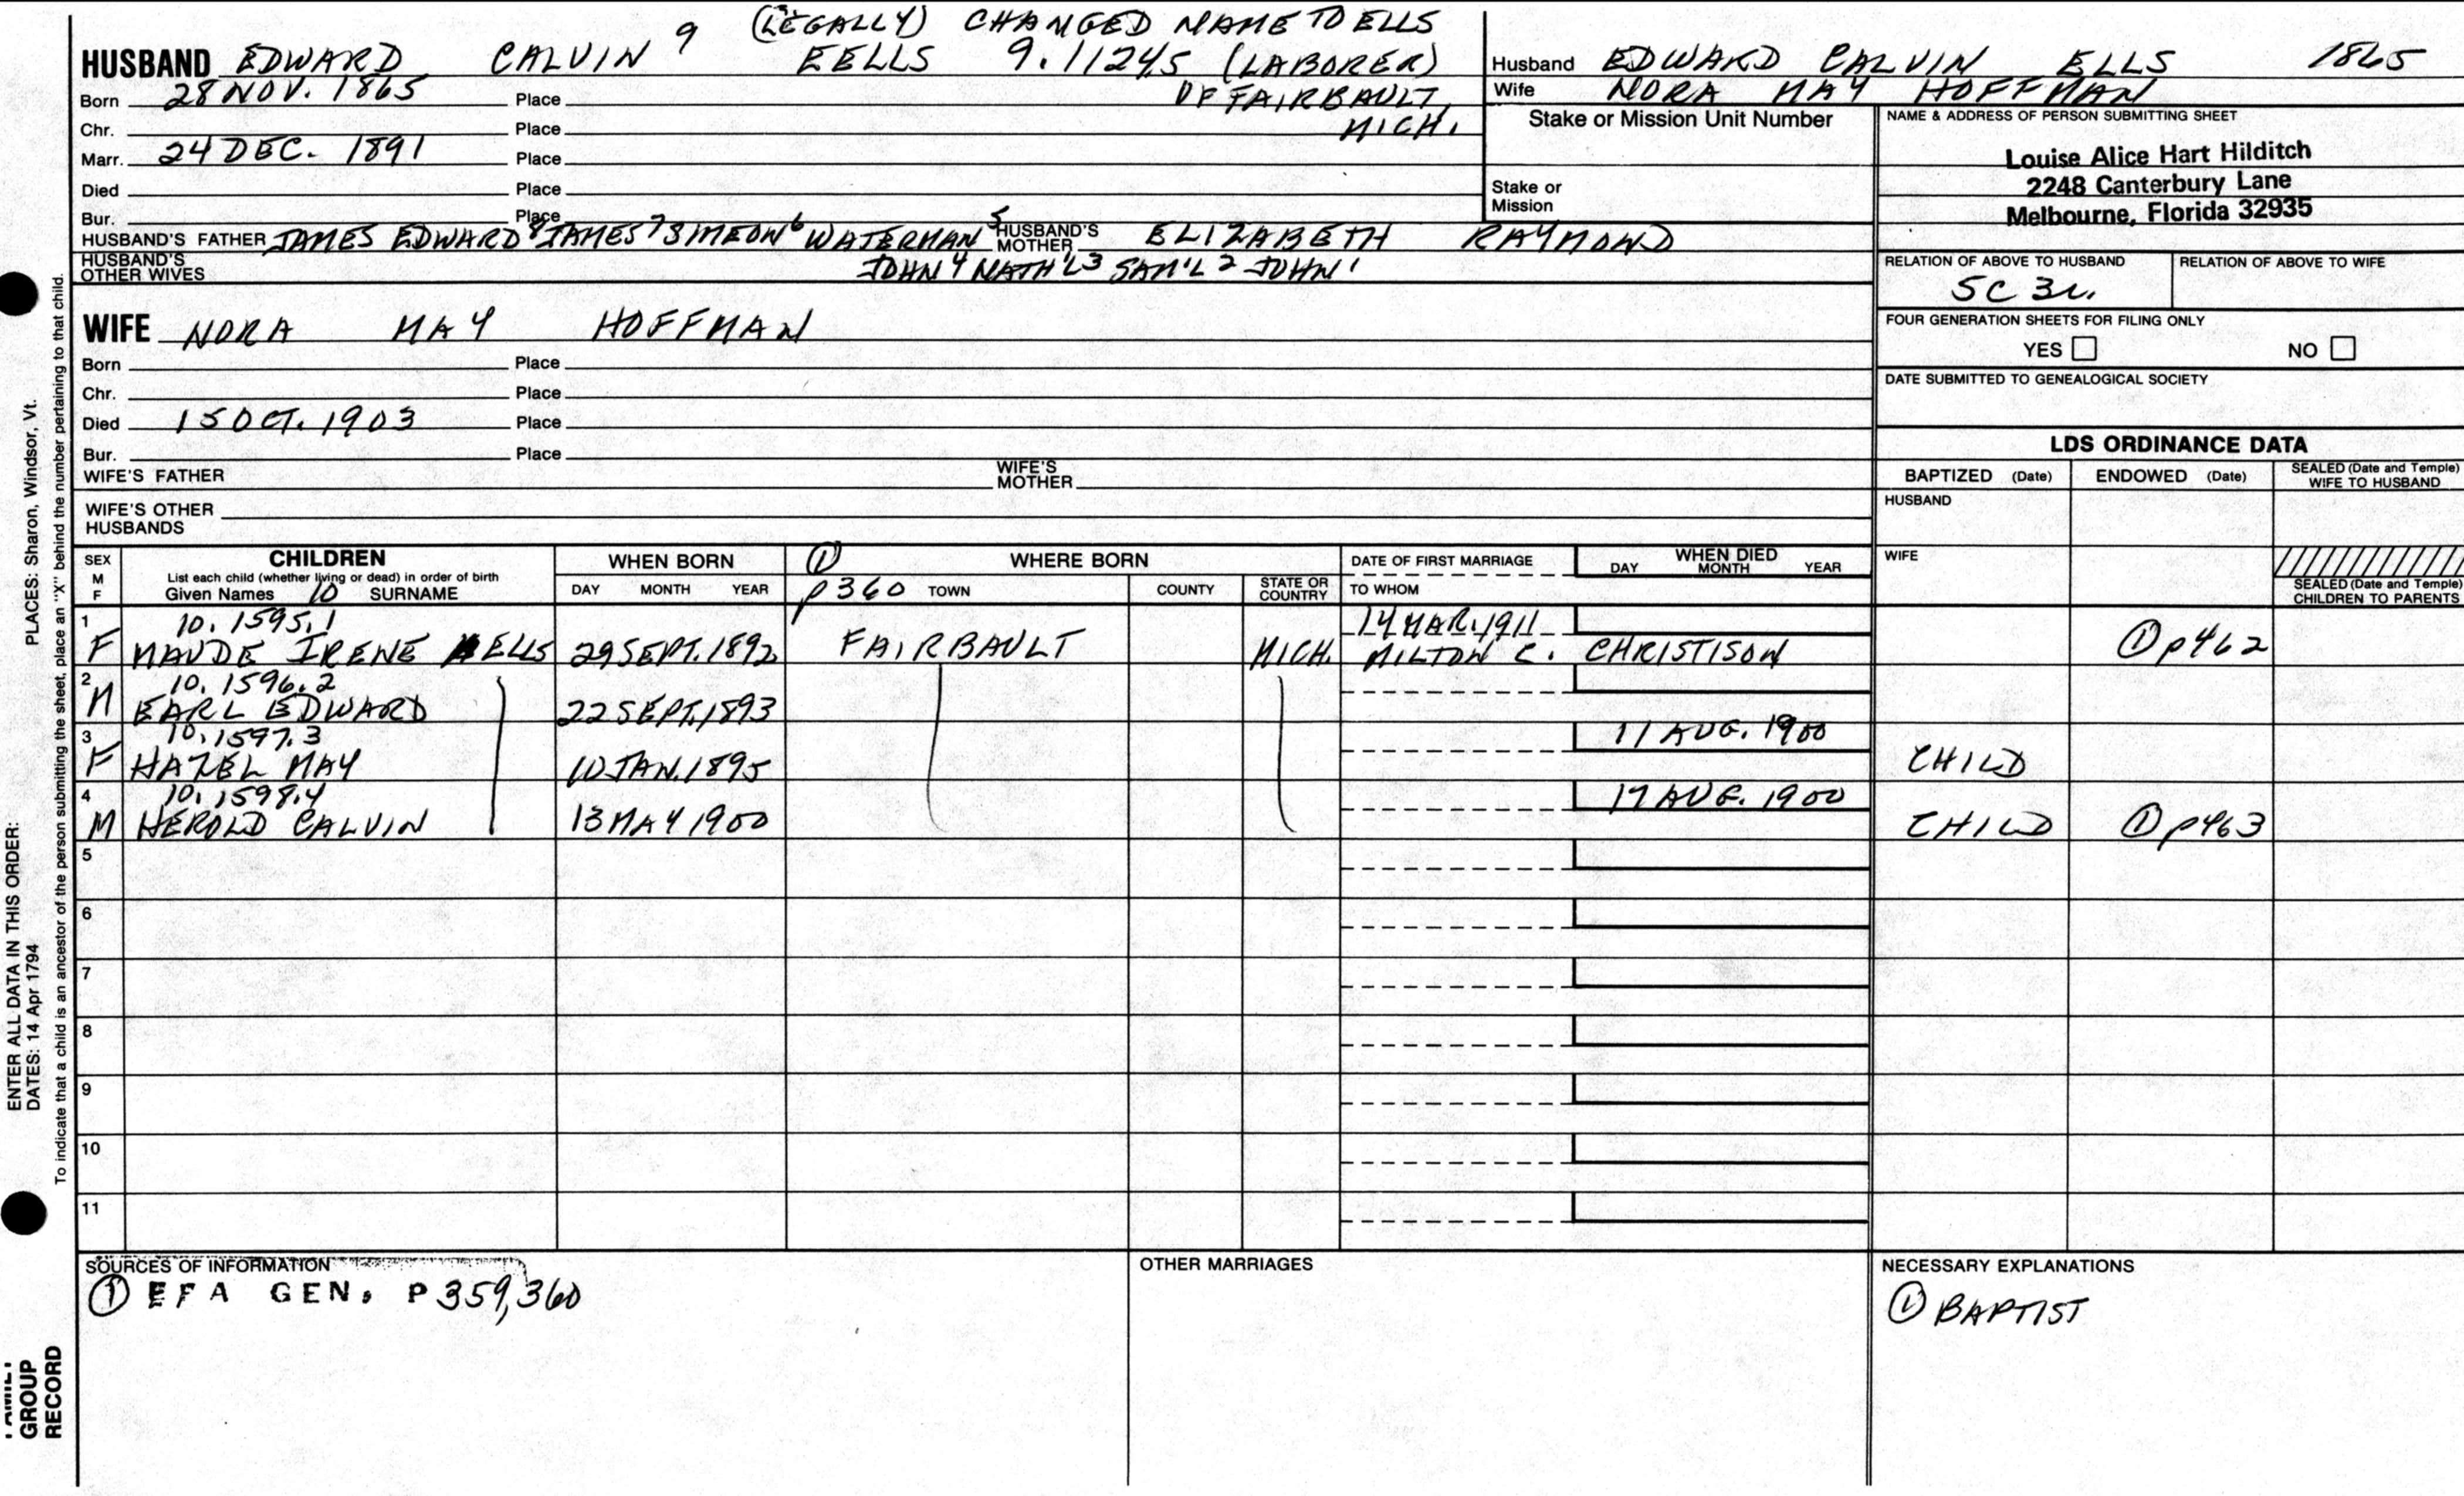 (LEGALLY) CHANGED NAME TO ELLS
HUSBAND EDWARD CALVIN 9 EELLS 9.1124.5 (LABORER)
Born 28 NOV. 1865 Place OF FAIRBAULT,
Chr. Place MICH.
Marr. 24 DEC. 1891 Place
Died Place
Bur. Place
HUSBAND'S FATHER JAMES EDWARD 8 JAMES 7 SIMEON 6 WATERMAN 5 HUSBAND'S MOTHER ELIZABETH RAYMOND
HUSBAND'S OTHER WIVES JOHN 4 NATH'L 3 SAM'L 2 JOHN 1
Husband EDWARD CALVIN ELLS 1865
Wife NORA MAY HOFFMAN
Stake or Mission Unit Number
Stake or
Mission
NAME & ADDRESS OF PERSON SUBMITTING SHEET
Louise Alice Hart Hilditch
2248 Canterbury Lane
Melbourne, Florida 32935
RELATION OF ABOVE TO HUSBAND RELATION OF ABOVE TO WIFE
5C 3r.
FOUR GENERATION SHEETS FOR FILING ONLY
YES NO
DATE SUBMITTED TO GENEALOGICAL SOCIETY
WIFE NORA MAY HOFFMAN
Born Place
Chr. Place
Died 15 OCT. 1903 Place
Bur. Place
WIFE'S FATHER WIFE'S MOTHER
WIFE'S OTHER
HUSBANDS
LDS ORDINANCE DATA
BAPTIZED (Date) ENDOWED (Date) SEALED (Date and Temple) WIFE TO HUSBAND
HUSBAND
WIFE
SEALED (Date and Temple)
CHILDREN TO PARENTS
SEX
M
F
CHILDREN
List each child (whether living or dead) in order of birth
Given Names 10 SURNAME
WHEN BORN
DAY MONTH YEAR
① WHERE BORN
p360 TOWN COUNTY STATE OR COUNTRY
DATE OF FIRST MARRIAGE
TO WHOM
WHEN DIED
DAY MONTH YEAR
1 10.1595.1 14 MAR. 1911
F MAUDE IRENE ELLS 29 SEPT. 1892 FAIRBAULT MICH. MILTON C. CHRISTISON ① p462
2 10.1596.2
M EARL EDWARD 22 SEPT. 1893
3 10.1597.3 11 AUG. 1900
F HAZEL MAY 10 JAN. 1895 CHILD
4 10.1598.4 17 AUG. 1900
M HEROLD CALVIN 13 MAY 1900 CHILD ① p463
5
6
7
8
9
10
11
SOURCES OF INFORMATION
① EFA GEN. P 359, 360
OTHER MARRIAGES
NECESSARY EXPLANATIONS
① BAPTIST
ENTER ALL DATA IN THIS ORDER:
DATES: 14 Apr 1794 PLACES: Sharon, Windsor, Vt.
To indicate that a child is an ancestor of the person submitting the sheet, place an "X" behind the number pertaining to that child.
FAMILY
GROUP
RECORD